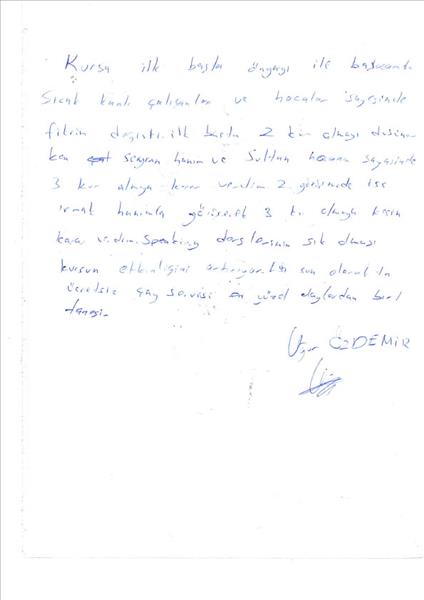 Kursa ilk başta önyargı ile başlasamda
Sıcak kanlı çalışanlar ve hocalar sayesinde
fikrim degişti.ilk başta 2 kur almayı düşünür
ken Seyran hanım ve Sultan hocam sayesinde
3 kur almaya karar verdim. 2. görüşmede ise
ırmak hanımla görüşerek 3 kur almaya kesin
karar verdim. Speaking derslerinin sık olması
kursun etkinligini artırıyor. son olarak
ücretsiz çay servisi en güzel olaylardan bir
tanesi.
Uğur ÖZDEMİR